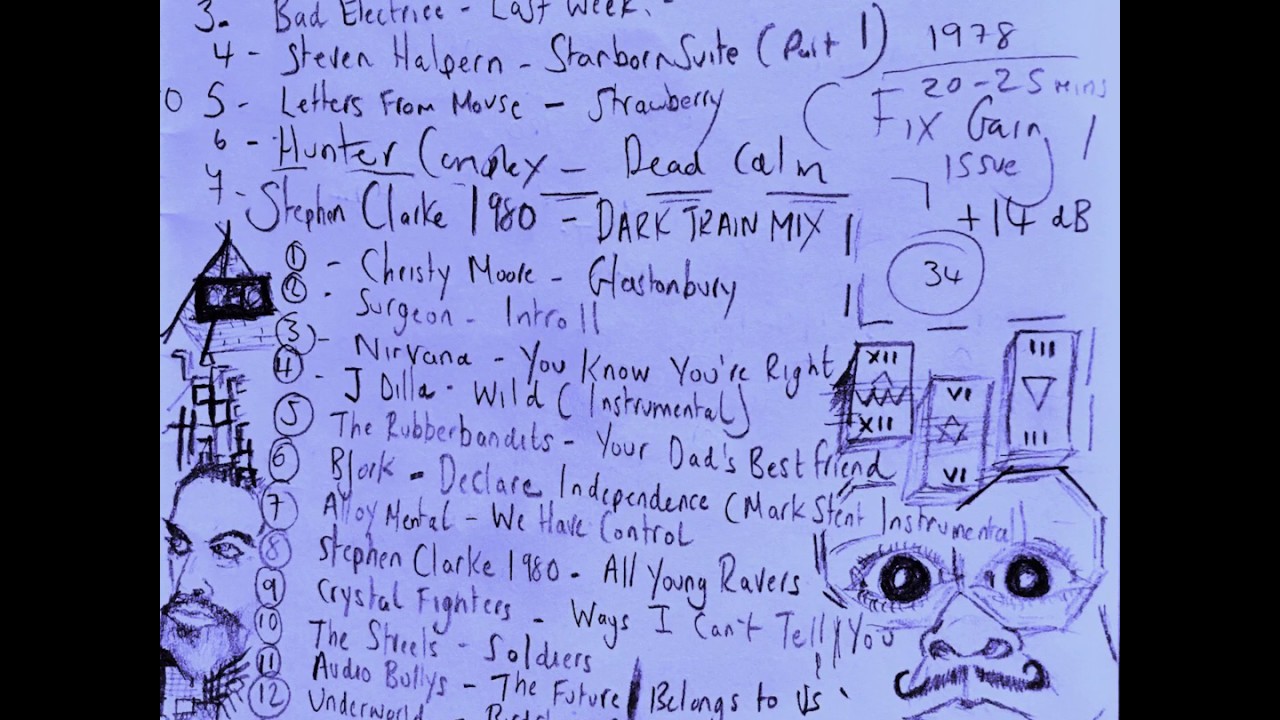 3. Bad Electrice - Last Week. -
4 - Steven Halpern - Starborn Suite (Part 1) 1978
20-25 mins
5 - Letters From Mouse - Strawberry
Fix Gain
Issue
+14 dB
6 - Hunter Complex - Dead Calm
7 - Stephen Clarke 1980 - DARK TRAIN MIX
34
1 - Christy Moore - Glastonbury
2 - Surgeon - Intro II
3 - Nirvana - You Know You're Right
4 - J Dilla - Wild (Instrumental)
5 The Rubberbandits - Your Dad's Best friend
6 Bjork - Declare Independence (Mark Stent Instrumental)
7 Alloy Mental - We Have Control
8 Stephen Clarke 1980 - All Young Ravers
9 Crystal Fighters - Ways I Can't Tell You
10 The Streets - Soldiers
11 Audio Bullys - The Future Belongs to Us
12 Underworld -
XII
XII
VI
VI
III
III